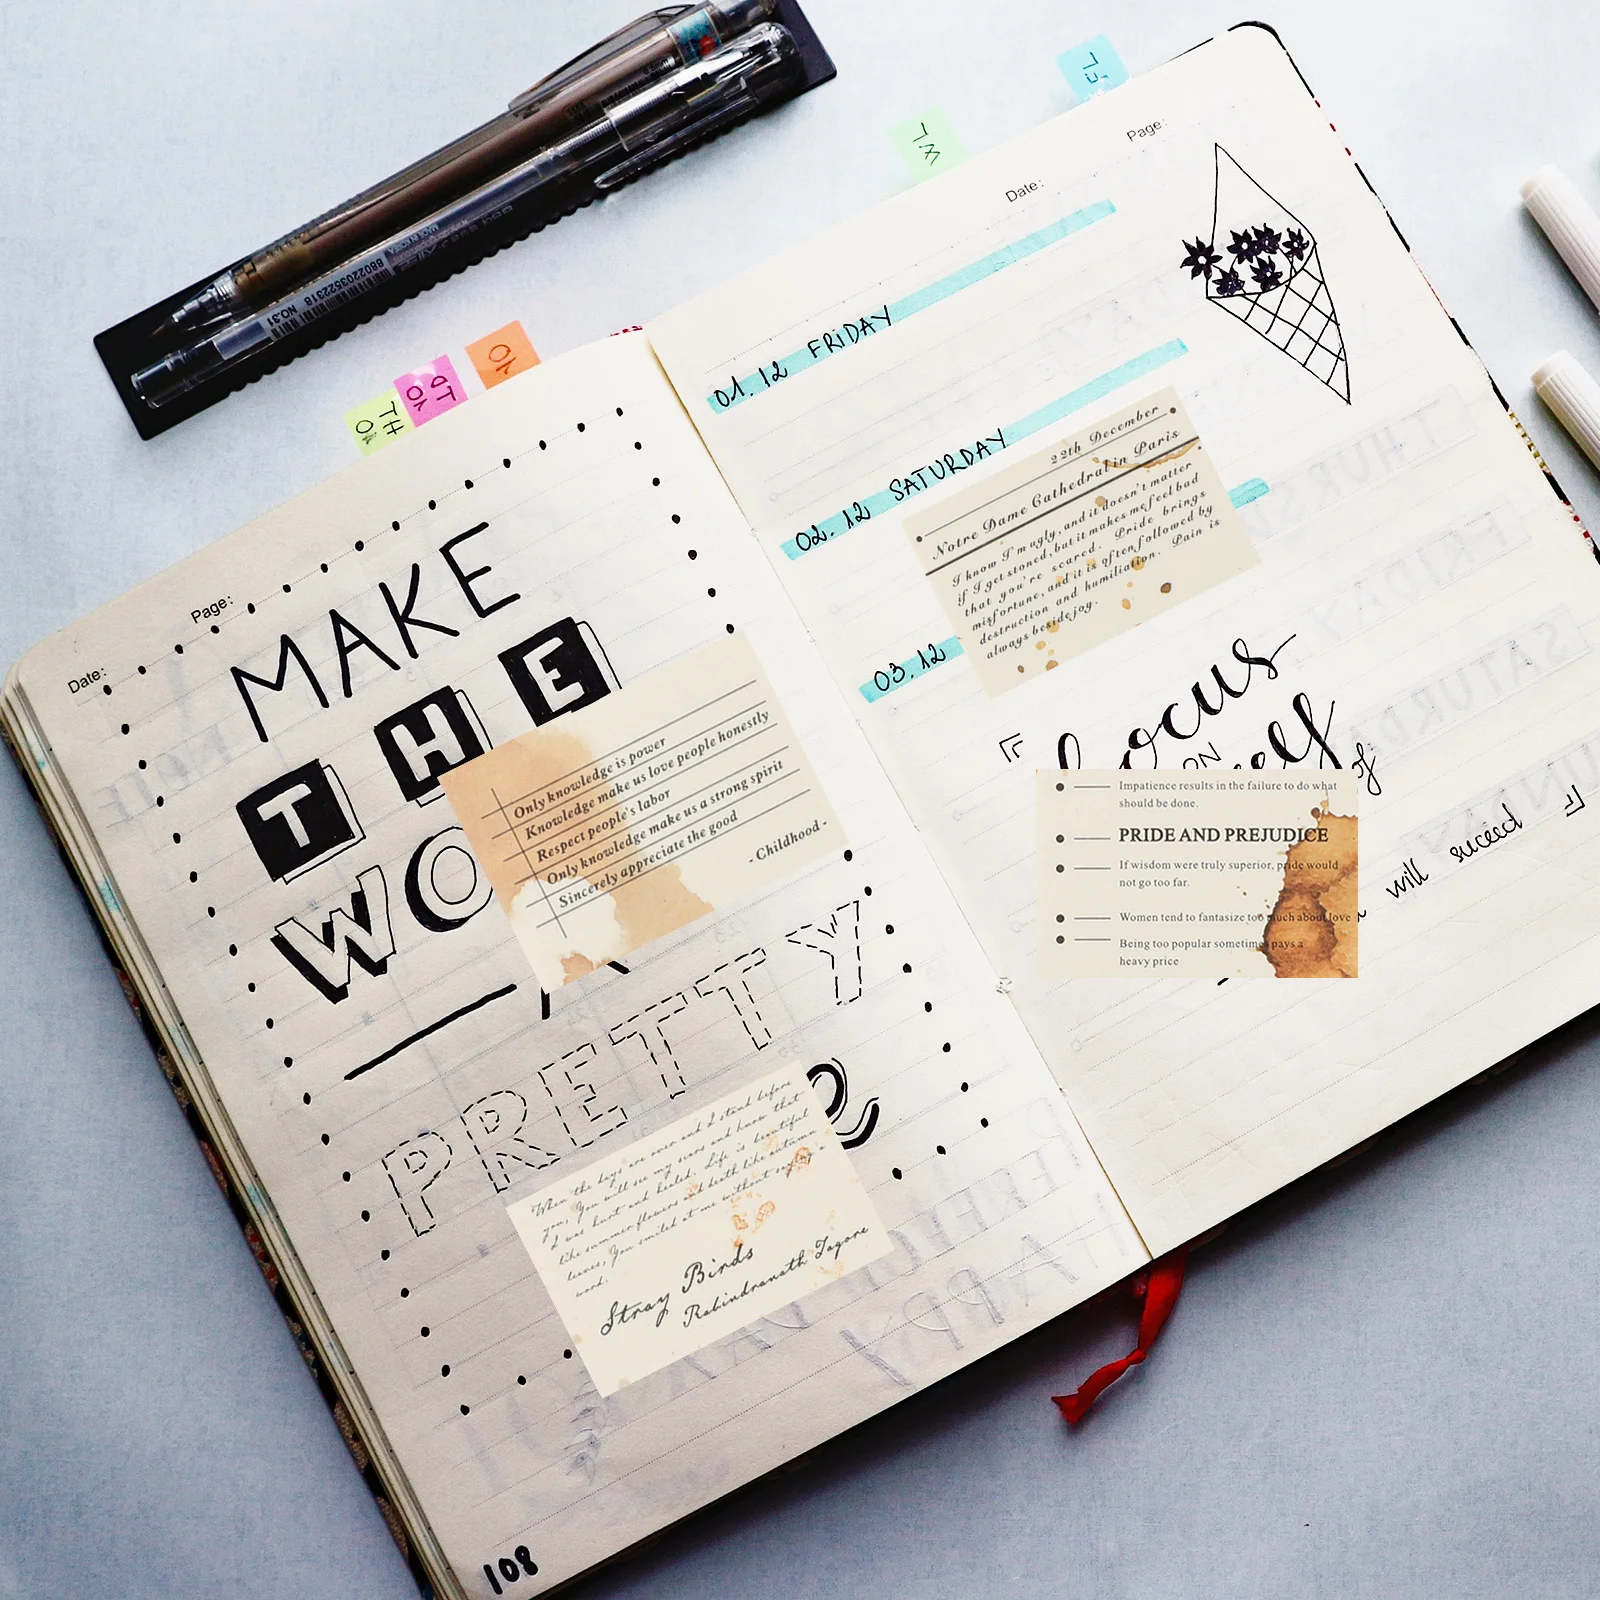 Date:
Page:
MAKE
THE
WO
PRETTY
108
Only knowledge is power
Knowledge make us love people honestly
Respect people's labor
Only knowledge make us a strong spirit
Sincerely appreciate the good
- Childhood -
When the days are over and I stand before
you, You will see my scars and know that
I was hurt and healed. Life is beautiful
like summer flowers and death like autumn
leaves, You smiled at me without saying a
word.
Stray Birds
Rabindranath Tagore
Date:
Page:
01.12 FRIDAY
02.12 SATURDAY
03.12
22th December
Notre Dame Cathedral in Paris
I know I'm ugly, and it doesn't matter
if I get stoned, but it makes me feel bad
that you're scared. Pride brings
misfortune, and it is often followed by
destruction and humiliation. Pain is
always beside joy.
focus
ON
self
of
will suceed
Impatience results in the failure to do what
should be done.
PRIDE AND PREJUDICE
If wisdom were truly superior, pride would
not go too far.
Women tend to fantasize too much about love
Being too popular sometimes pays a
heavy price
MADE IN KOREA
8802203522318
NO.31